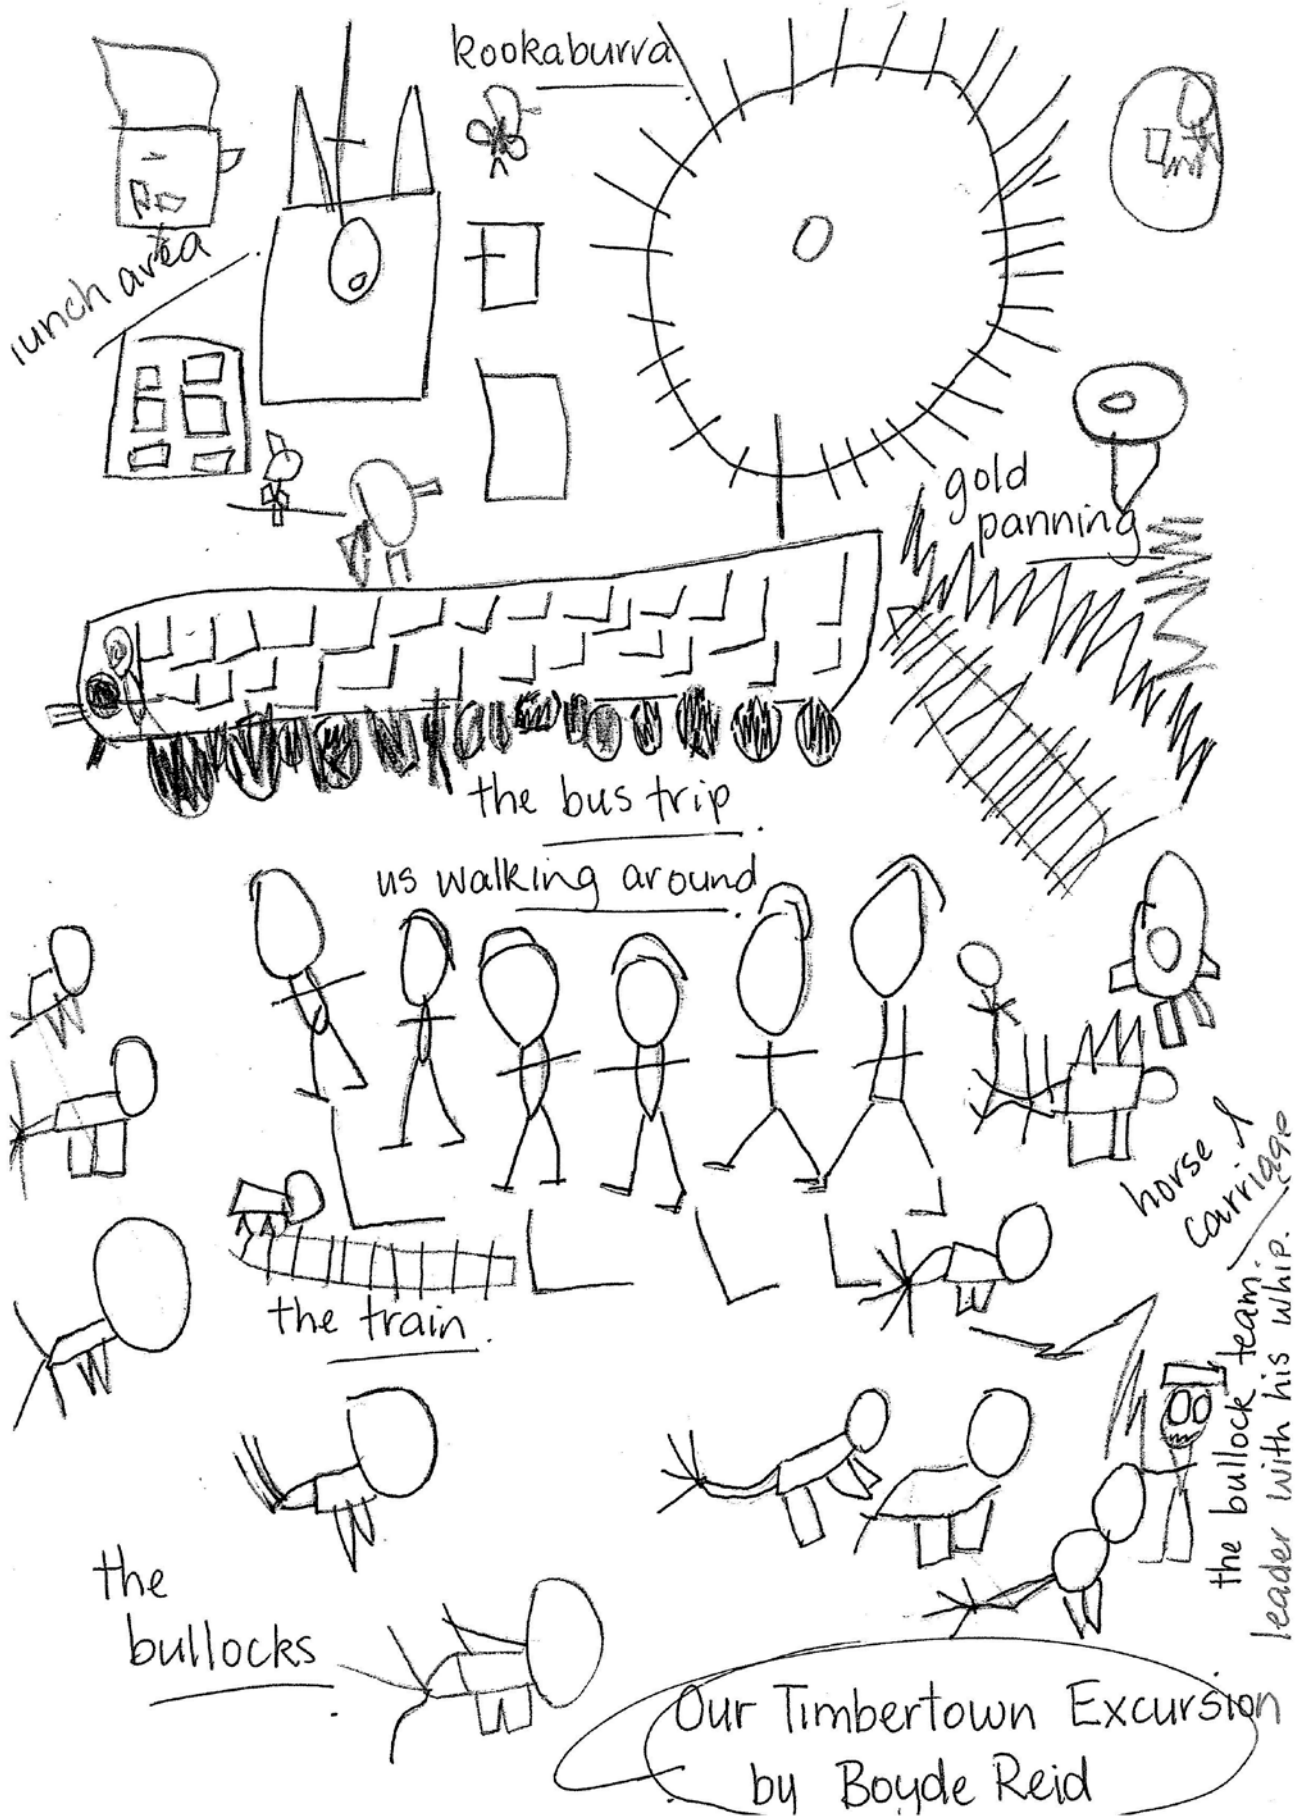 kookaburra
lunch area
gold
panning
the bus trip
us walking around
horse &
carriage
the train.
the bullock team.
leader with his whip.
the
bullocks
Our Timbertown Excursion
by Boyde Reid